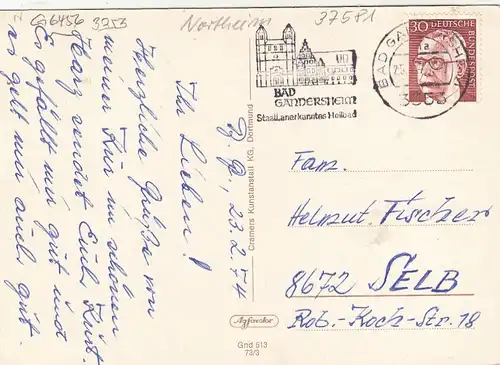 G6456 3253
Northeim
37581
Ihr Lieben!
B. G., 23.2.74
Herzliche Grüße von
meiner Kur im schönen
Harz sendet Euch Kurt.
Es gefällt mir gut und
es geht mir auch gut.
BAD
GANDERSHEIM
Staatl. anerkanntes Heilbad
BAD GA
a
30
DEUTSCHE
BUNDESPOST
Cramers Kunstanstalt KG, Dortmund
Fam.
Helmut Fischer
8672 SELB
Rob.-Koch-Str. 18
Agfacolor
Gnd 513
73/3